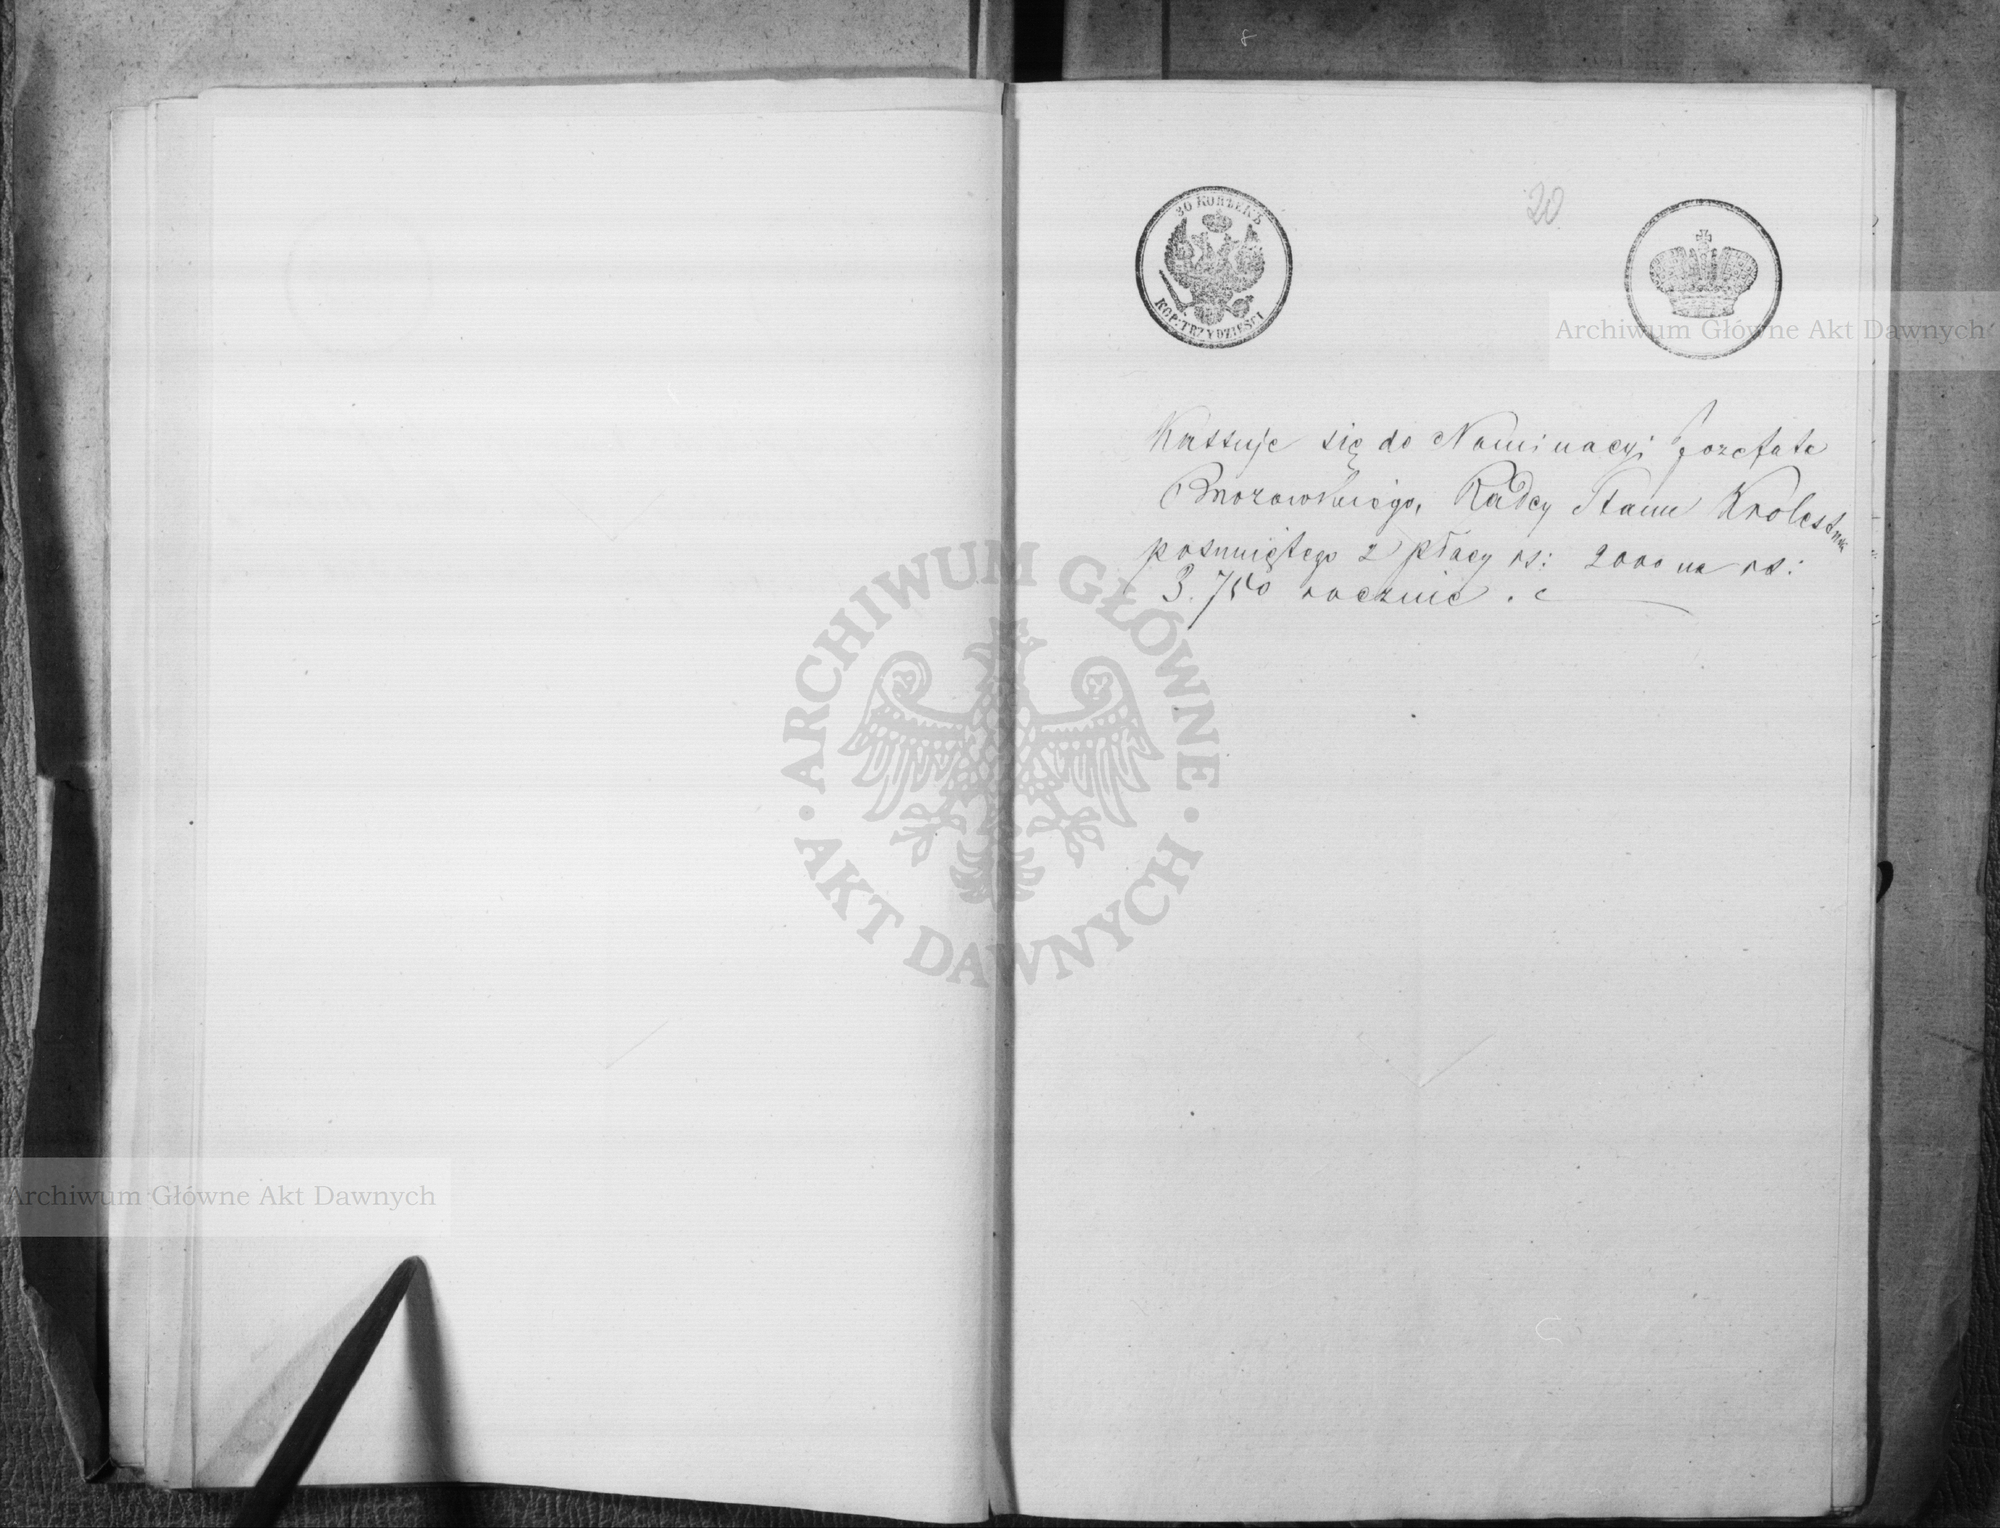 8
20
30 КОПѢЕКЪ
KOP: TRZYDZIEŚCI
Archiwum Główne Akt Dawnych
Kassuje się do Nominacyi Jozefata
Bnorowskiego, Radcy Stanu Królestwa
posuniętego z płacy rs: 2000 na rs:
3.750 rocznie.
ARCHIWUM GŁÓWNE
AKT DAWNYCH
Archiwum Główne Akt Dawnych